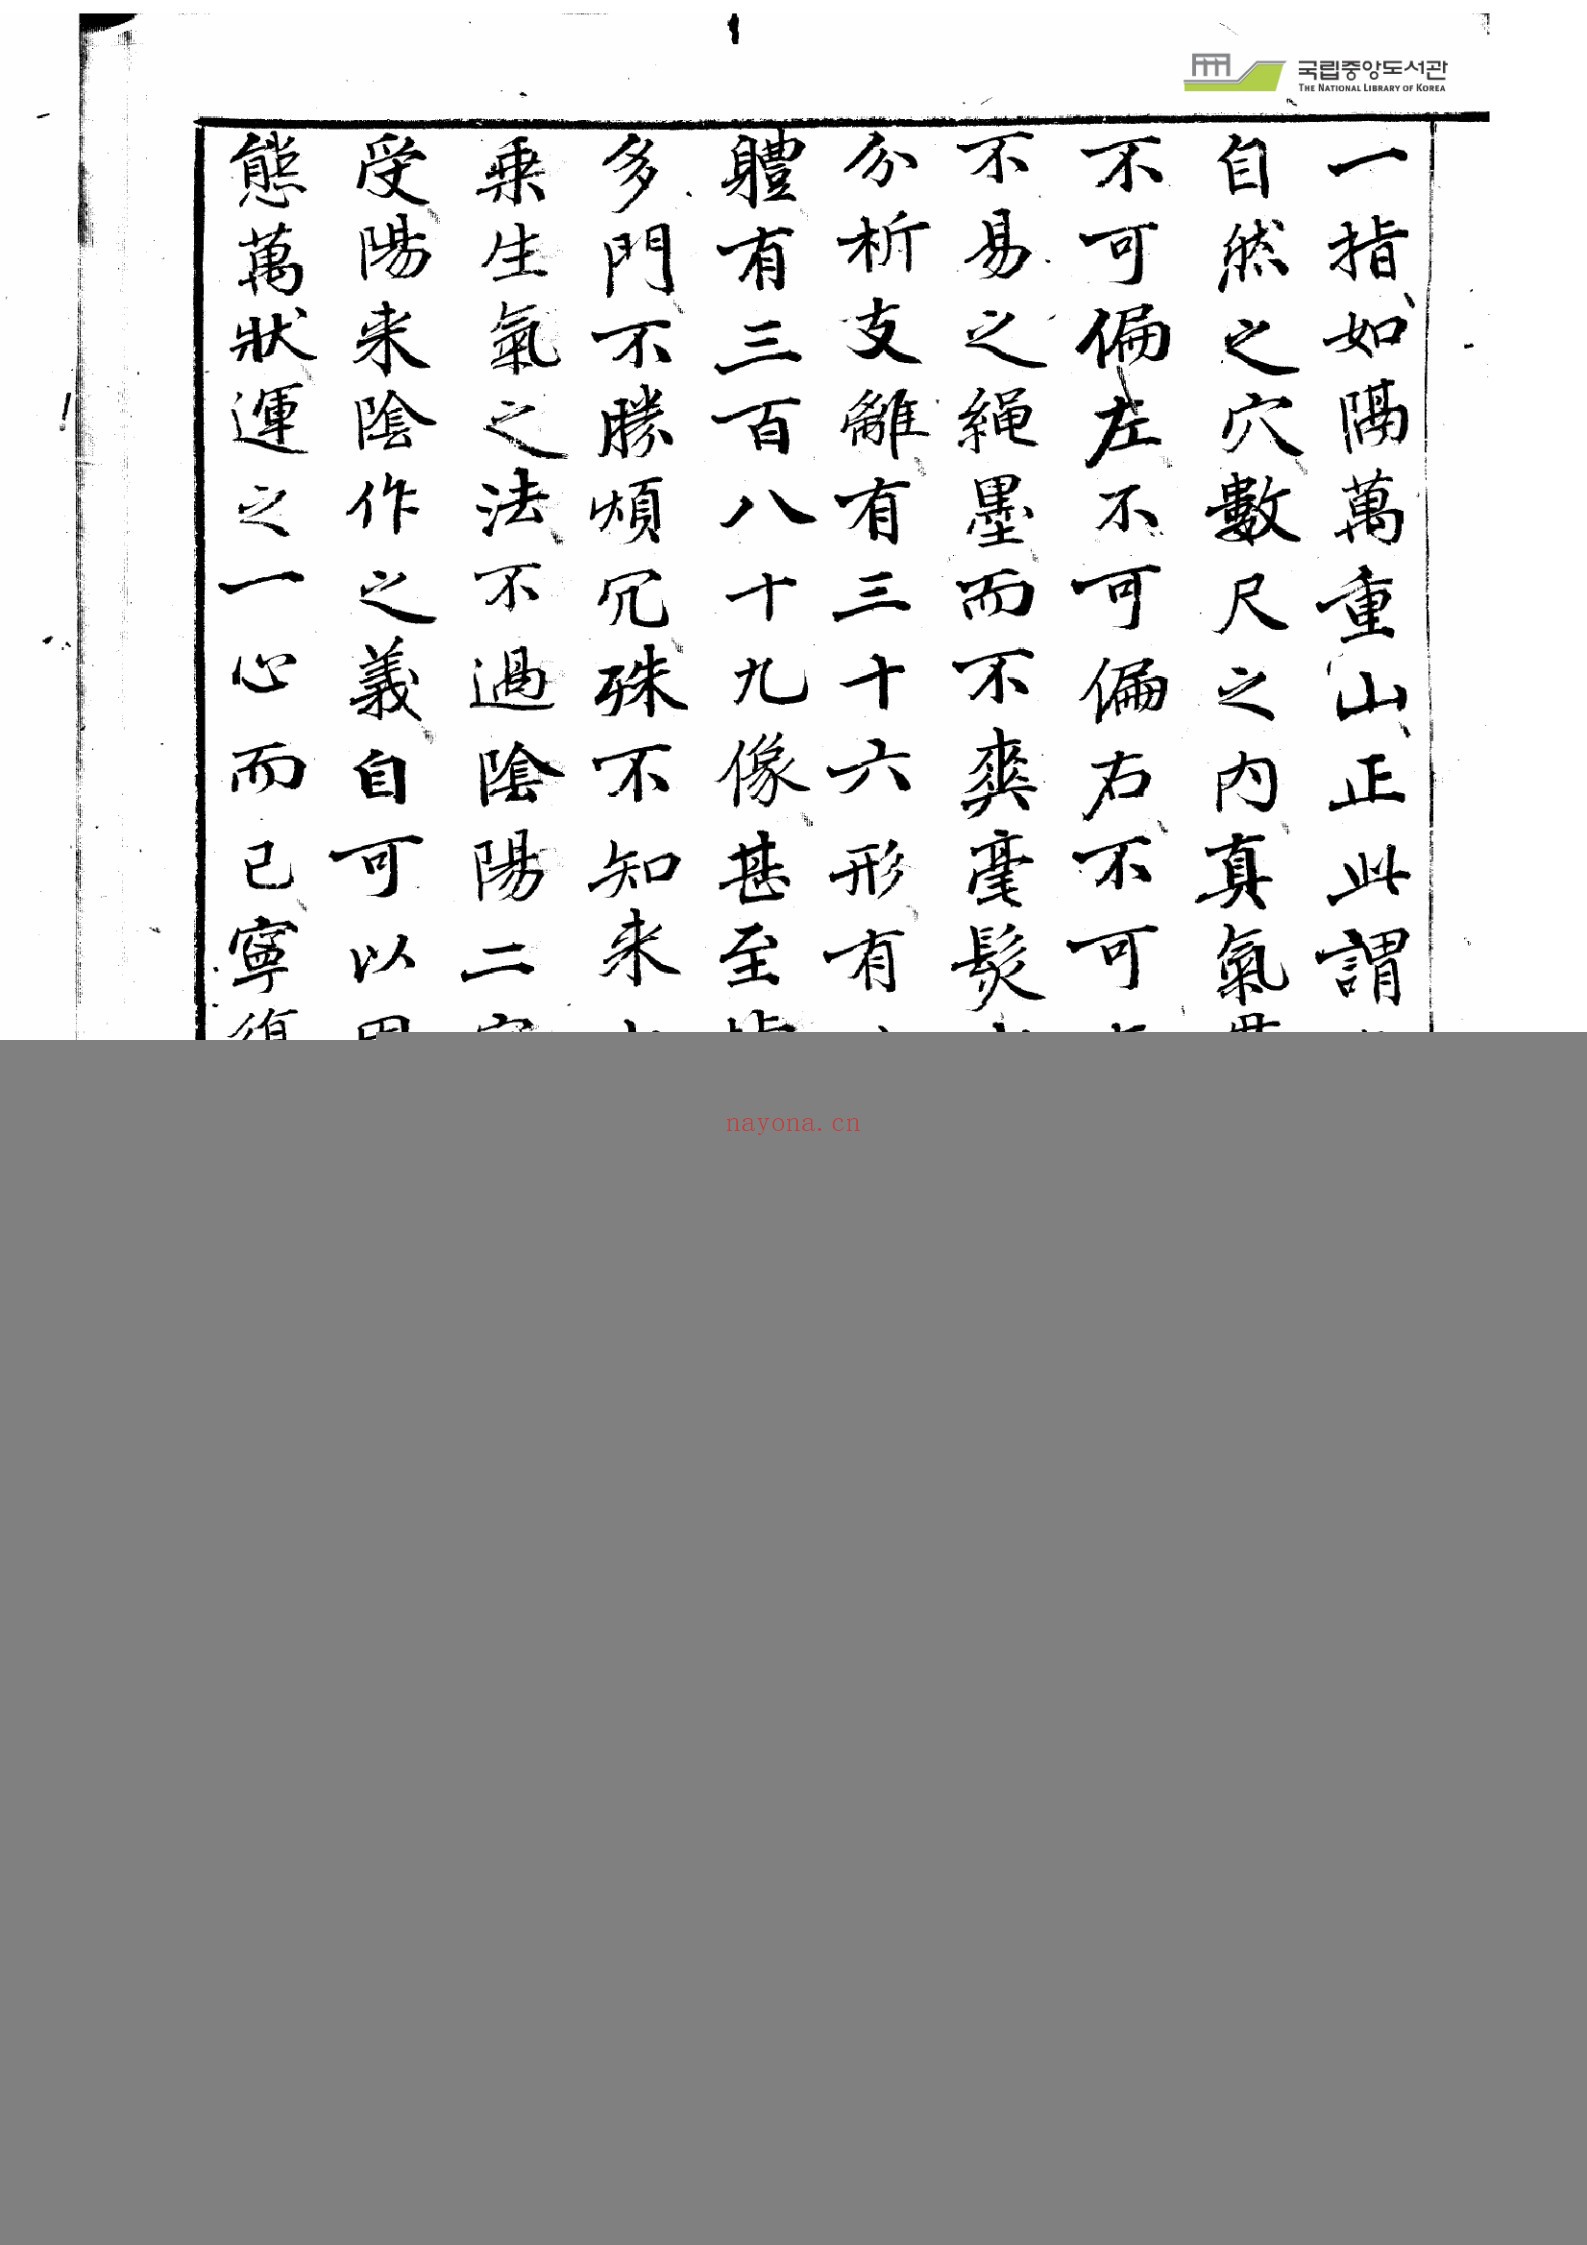 국립중앙도서관
THE NATIONAL LIBRARY OF KOREA
一指如隔萬重山正此謂
自然之穴數尺之內真氣
不可偏左不可偏右不可
不易之繩墨而不爽毫髮
分析支離有三十六形有
軆有三百八十九像甚至
多門不勝煩冗殊不知来
乗生氣之法不過陰陽二
受陽来陰作之義自可以
態萬狀運之一心而已寧
nayona.cn